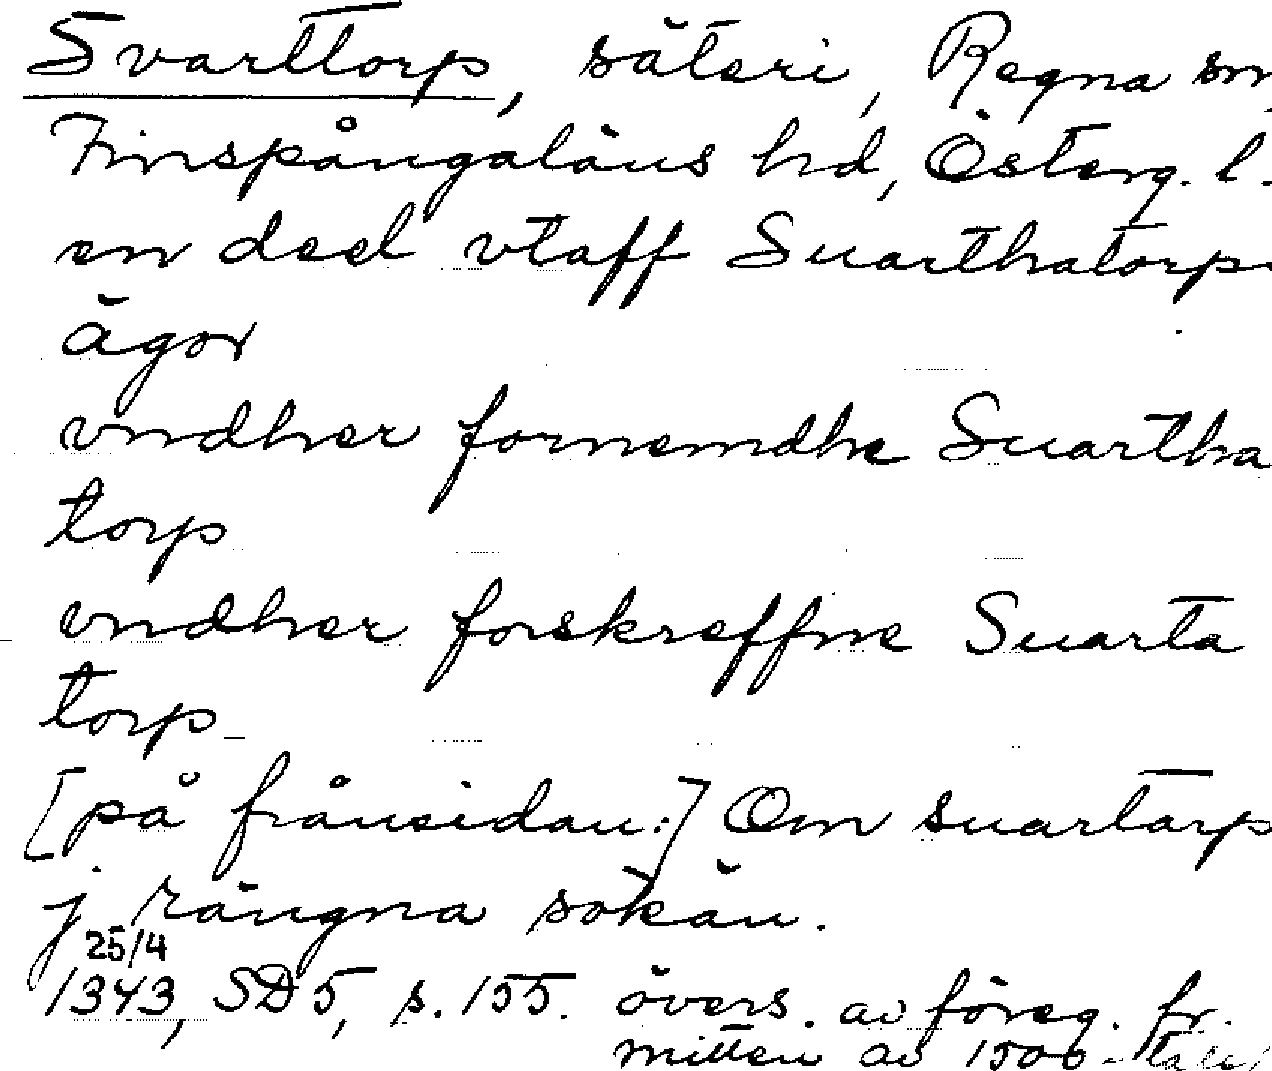 Svarttorp, säteri, Regna sn,
Finspångaläns hd, Österg. l.
en deel vtaff Suarthatorps
ägor
vndher fornemdhe Suartha
torp
vndher forskreffne Suarta
torp
[på frånsidan:] Om suartarp
j rängna sokän.
25/4
1343, SD 5, s. 155. övers. av föreg. fr.
mitten av 1500-talet